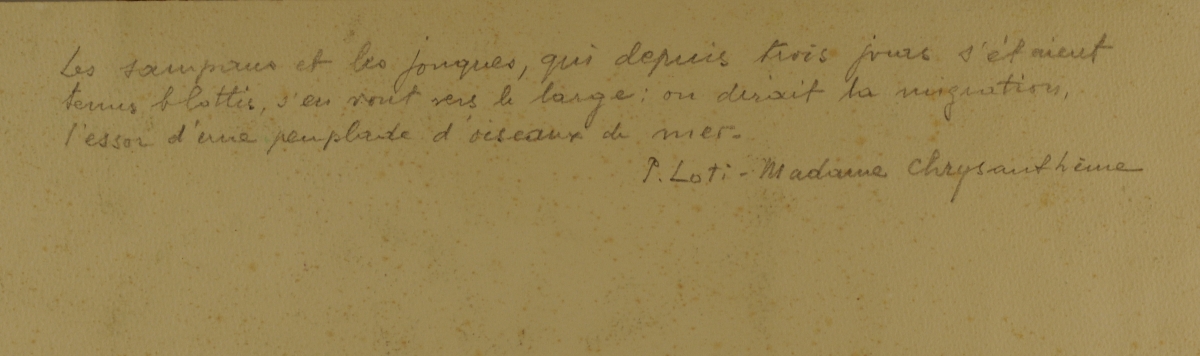 Les sampans et les jonques, qui depuis trois jours s'étaient
tenus blottis, s'en vont vers le large : on dirait la migration,
l'essor d'une peuplade d'oiseaux de mer.
P. Loti - Madame Chrysanthème